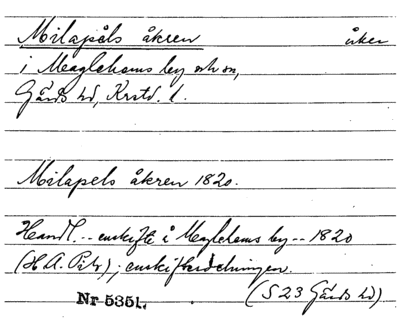 Milapåls åkren åker
i Maglehems by och sn,
Gärds hd, Krstd. l.
Milapels åkren 1820.
Handl. -- enskifte å Maglehems by -- 1820
(H. A. ); enskiftesdelningen.
(S 23 Gärds hd)
Nr 5351.